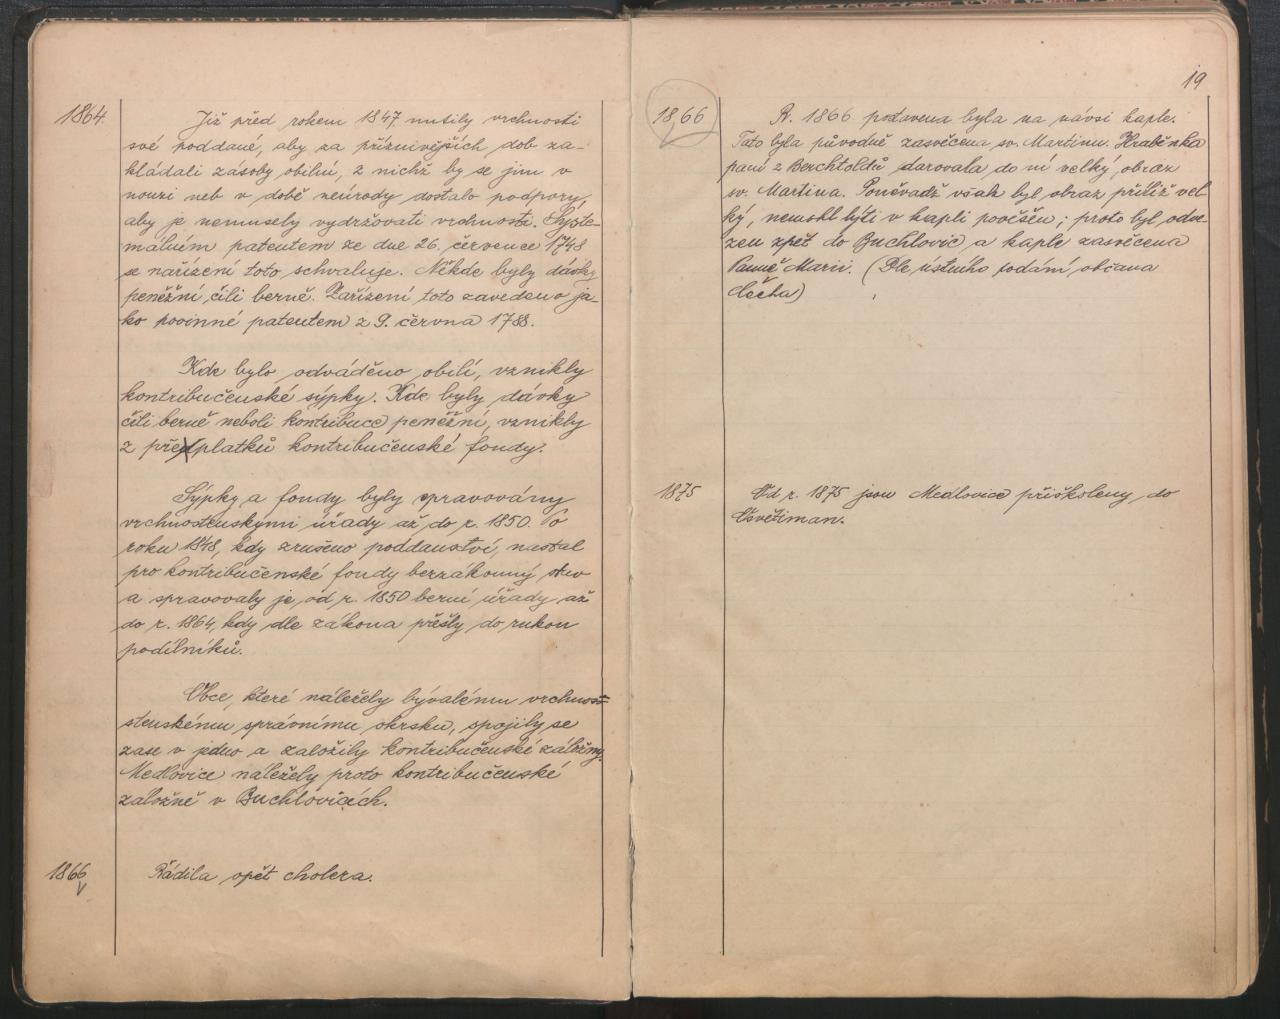 1864.
Již před rokem 1847 nutily vrchnosti
své poddané, aby za příznivějších dob za-
kládali zásoby obilní, z nichž by se jim v
nouzi neb v době neúrody dostalo podpory,
aby je nemusely vydržovati vrchnosti. Syste-
málním patentem ze dne 26. července 1748
se nařízení toto schvaluje. Někde byly dávky
peněžní čili berně. Zařízení toto zavedeno ja-
ko povinné patentem z 9. června 1788.
Kde bylo odváděno obilí, vznikly
kontribučenské sýpky. Kde byly dávky
čili berně neboli kontribuce peněžní, vznikly
z předplatků kontribučenské fondy.
Sýpky a fondy byly spravovány
vrchnostenskými úřady až do r. 1850. Po
roku 1848, kdy zrušeno poddanství, nastal
pro kontribučenské fondy bezzákonný stav
a spravovaly je od r. 1850 berní úřady až
do r. 1864, kdy dle zákona přešly do rukou
podílníků.
Obce, které náležely bývalému vrchnost-
stenskému správnímu okrsku, spojily se
zase v jedno a založily kontribučenské záložny.
Medlovice náležely proto kontribučenské
záložně v Buchlovicích.
1866
Řádila opět cholera.
19
1866
R. 1866 postavena byla na návsi kaple.
Tato byla původně zasvěcena sv. Martinu. Hraběnka
paní z Berchtoldů darovala do ní velký obraz
sv. Martina. Poněvadž však byl obraz příliž vel-
ký, nemohl býti v kapli pověšen; proto byl odve-
zen zpět do Buchlovic a kaple zasvěcena
Panně Marii. (Dle ústního podání občana
Čecha)
1875
Od r. 1875 jsou Medlovice přiškoleny do
Osvětiman.